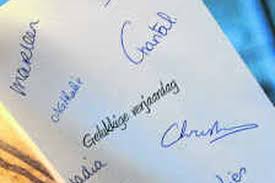 Marleen
Chantal
Nathalie
Gelukkige verjaardag
Christ
Nadia